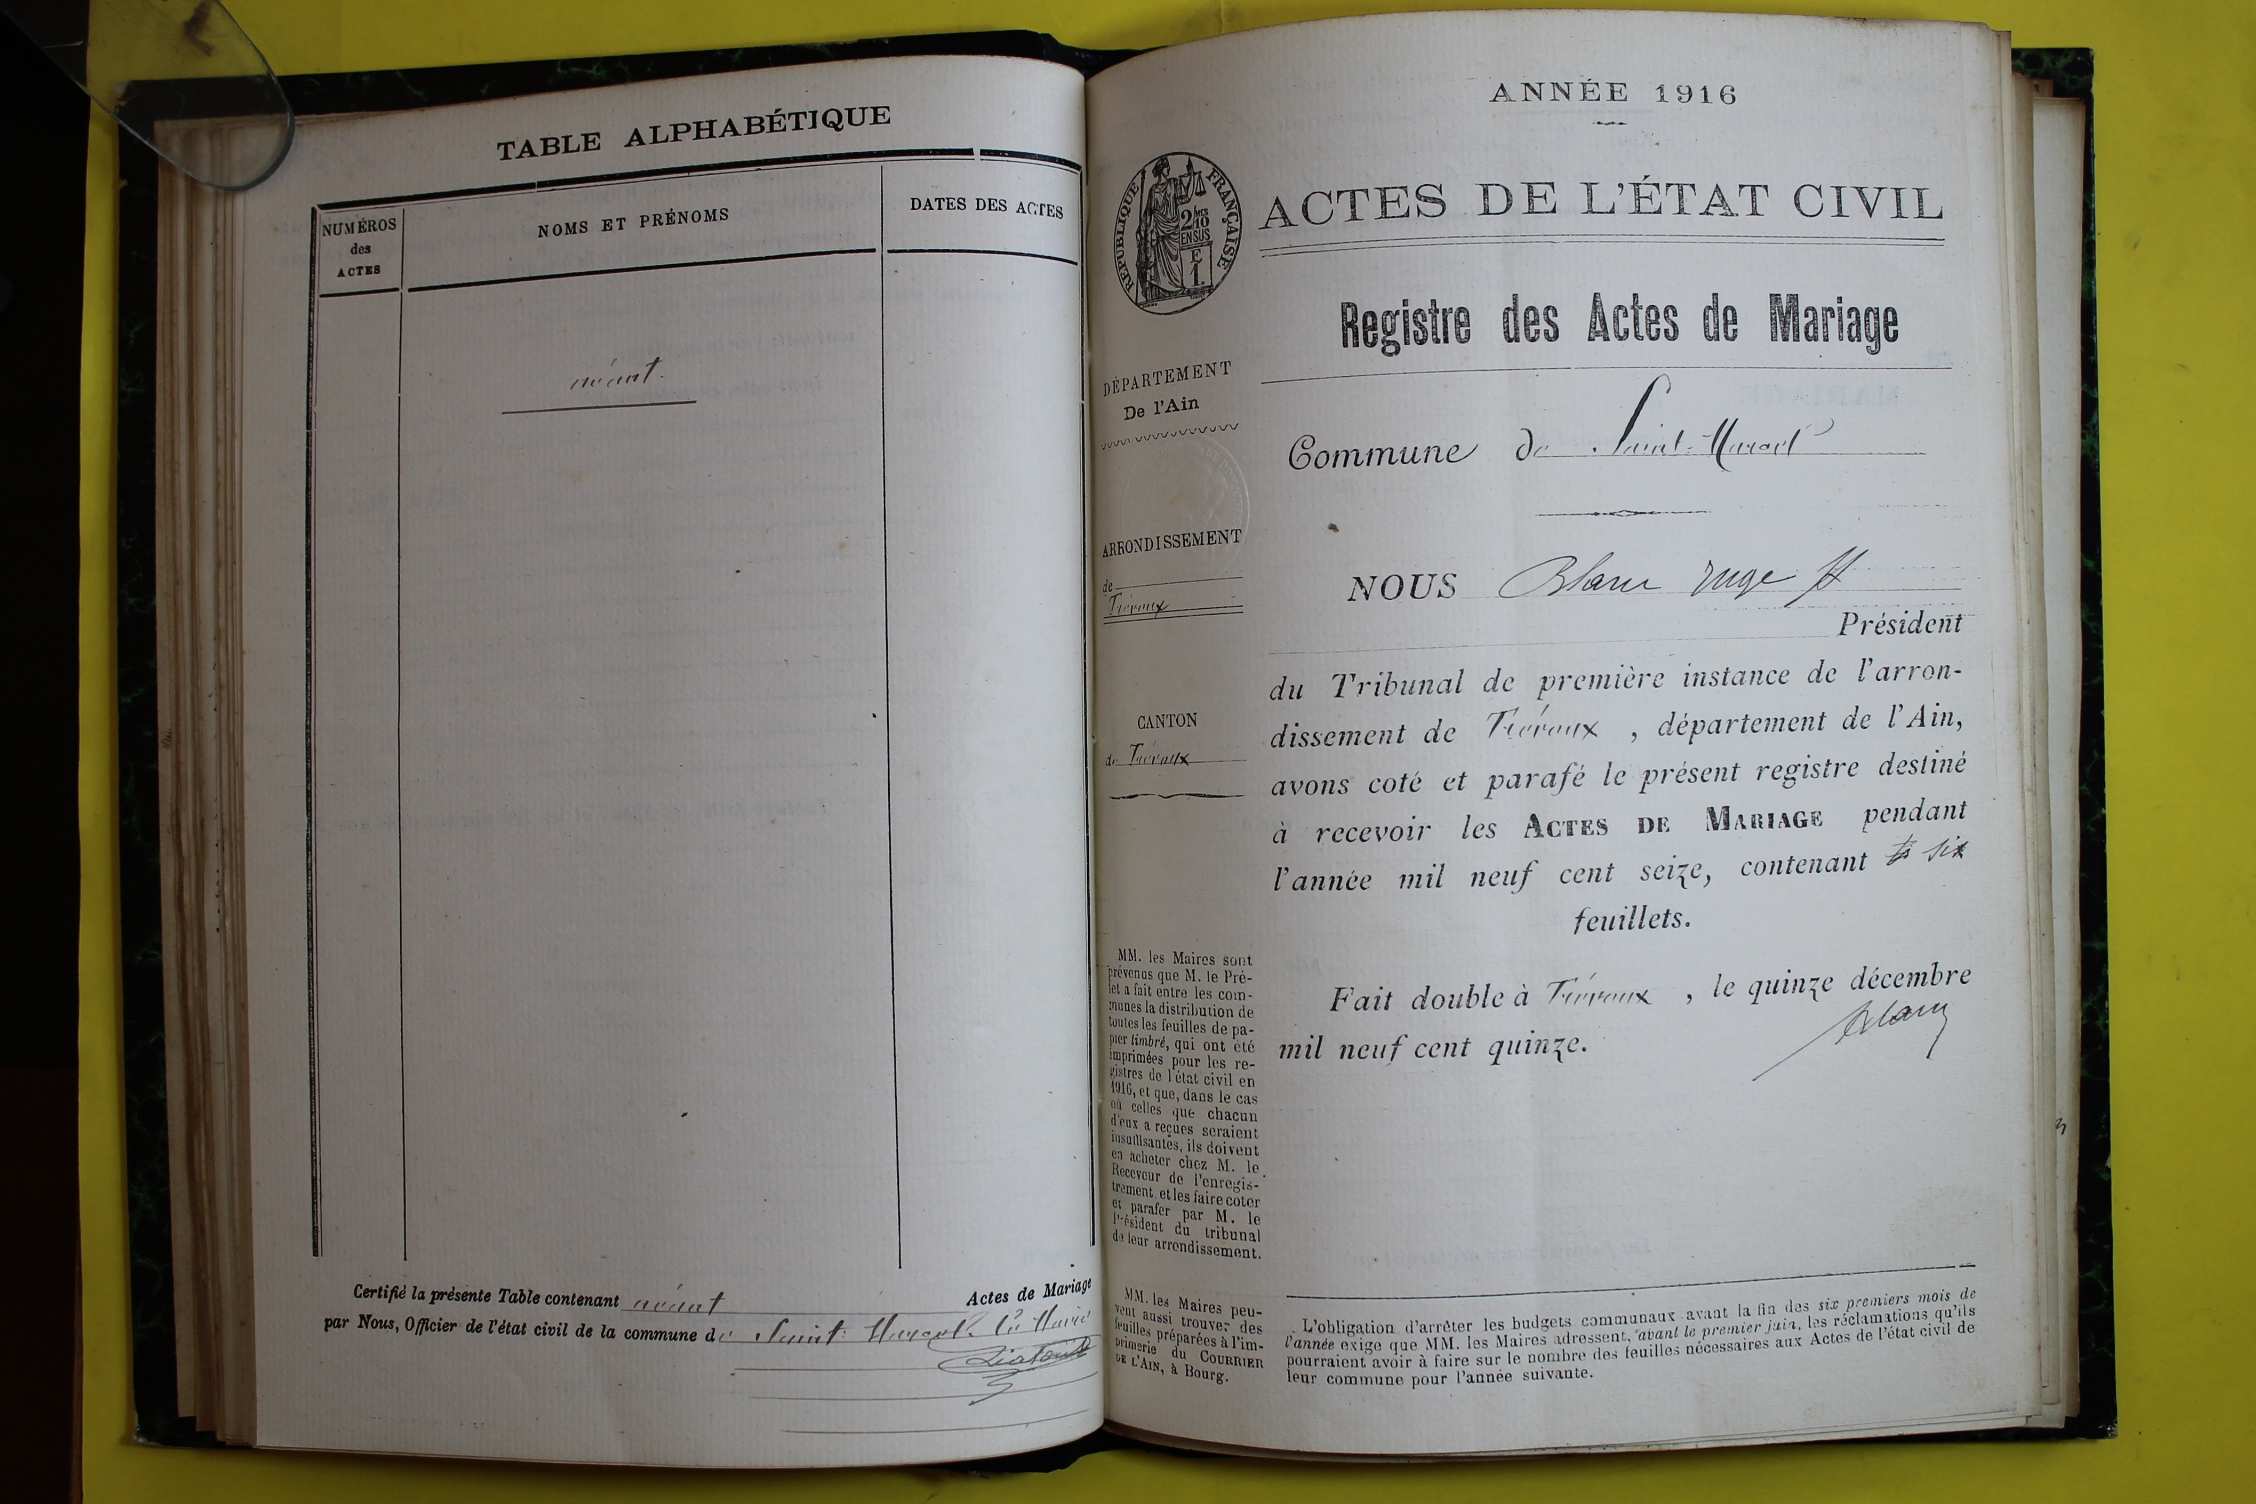 TABLE ALPHABÉTIQUE
NUMÉROS
des
ACTES
NOMS ET PRÉNOMS
DATES DES ACTES
néant.
Certifié la présente Table contenant néant Actes de Mariage
par Nous, Officier de l'état civil de la commune de Saint-Marcel. Le Maire
ANNÉE 1916
RÉPUBLIQUE FRANÇAISE
2/10
EN SUS
E
1
ACTES DE L'ÉTAT CIVIL
Registre des Actes de Mariage
DÉPARTEMENT
De l'Ain
Commune de Saint-Marcel
ARRONDISSEMENT
de
Trévoux
CANTON
de Trévoux
NOUS Blanc Juge
Président
du Tribunal de première instance de l'arron-
dissement de Trévoux, département de l'Ain,
avons coté et parafé le présent registre destiné
à recevoir les ACTES DE MARIAGE pendant
l'année mil neuf cent seize, contenant six
feuillets.
Fait double à Trévoux, le quinze décembre
mil neuf cent quinze.
Blanc
MM. les Maires sont
prévenus que M. le Pré-
fet a fait entre les com-
munes la distribution de
toutes les feuilles de pa-
pier timbré, qui ont été
imprimées pour les re-
gistres de l'état civil en
1916, et que, dans le cas
où celles que chacun
d'eux a reçues seraient
insuffisantes, ils doivent
en acheter chez M. le
Receveur de l'enregis-
trement et les faire coter
et parafer par M. le
Président du tribunal
de leur arrondissement.
MM. les Maires peu-
vent aussi trouver des
feuilles préparées à l'im-
primerie du COURRIER
DE L'AIN, à Bourg.
L'obligation d'arrêter les budgets communaux avant la fin des six premiers mois de
l'année exige que MM. les Maires adressent, avant le premier juin, les réclamations qu'ils
pourraient avoir à faire sur le nombre des feuilles nécessaires aux Actes de l'état civil de
leur commune pour l'année suivante.